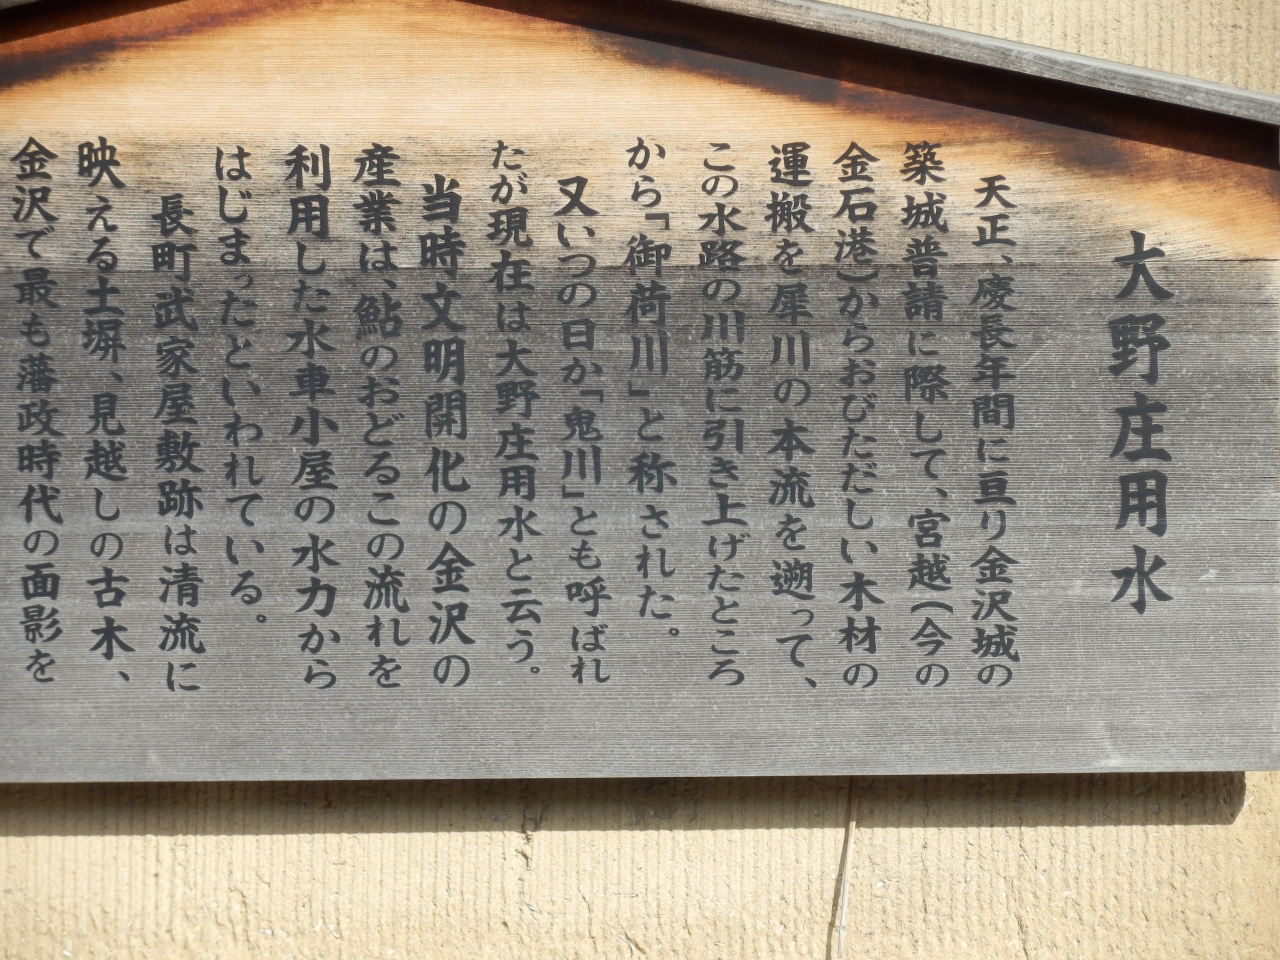 大野庄用水
天正、慶長年間に亘り金沢城の
築城普請に際して、宮越(今の
金石港)からおびただしい木材の
運搬を犀川の本流を遡って、
この水路の川筋に引き上げたところ
から「御荷川」と称された。
又いつの日か「鬼川」とも呼ばれ
たが現在は大野庄用水と云う。
当時文明開化の金沢の
産業は、鮎のおどるこの流れを
利用した水車小屋の水力から
はじまったといわれている。
長町武家屋敷跡は清流に
映える土塀、見越しの古木、
金沢で最も藩政時代の面影を